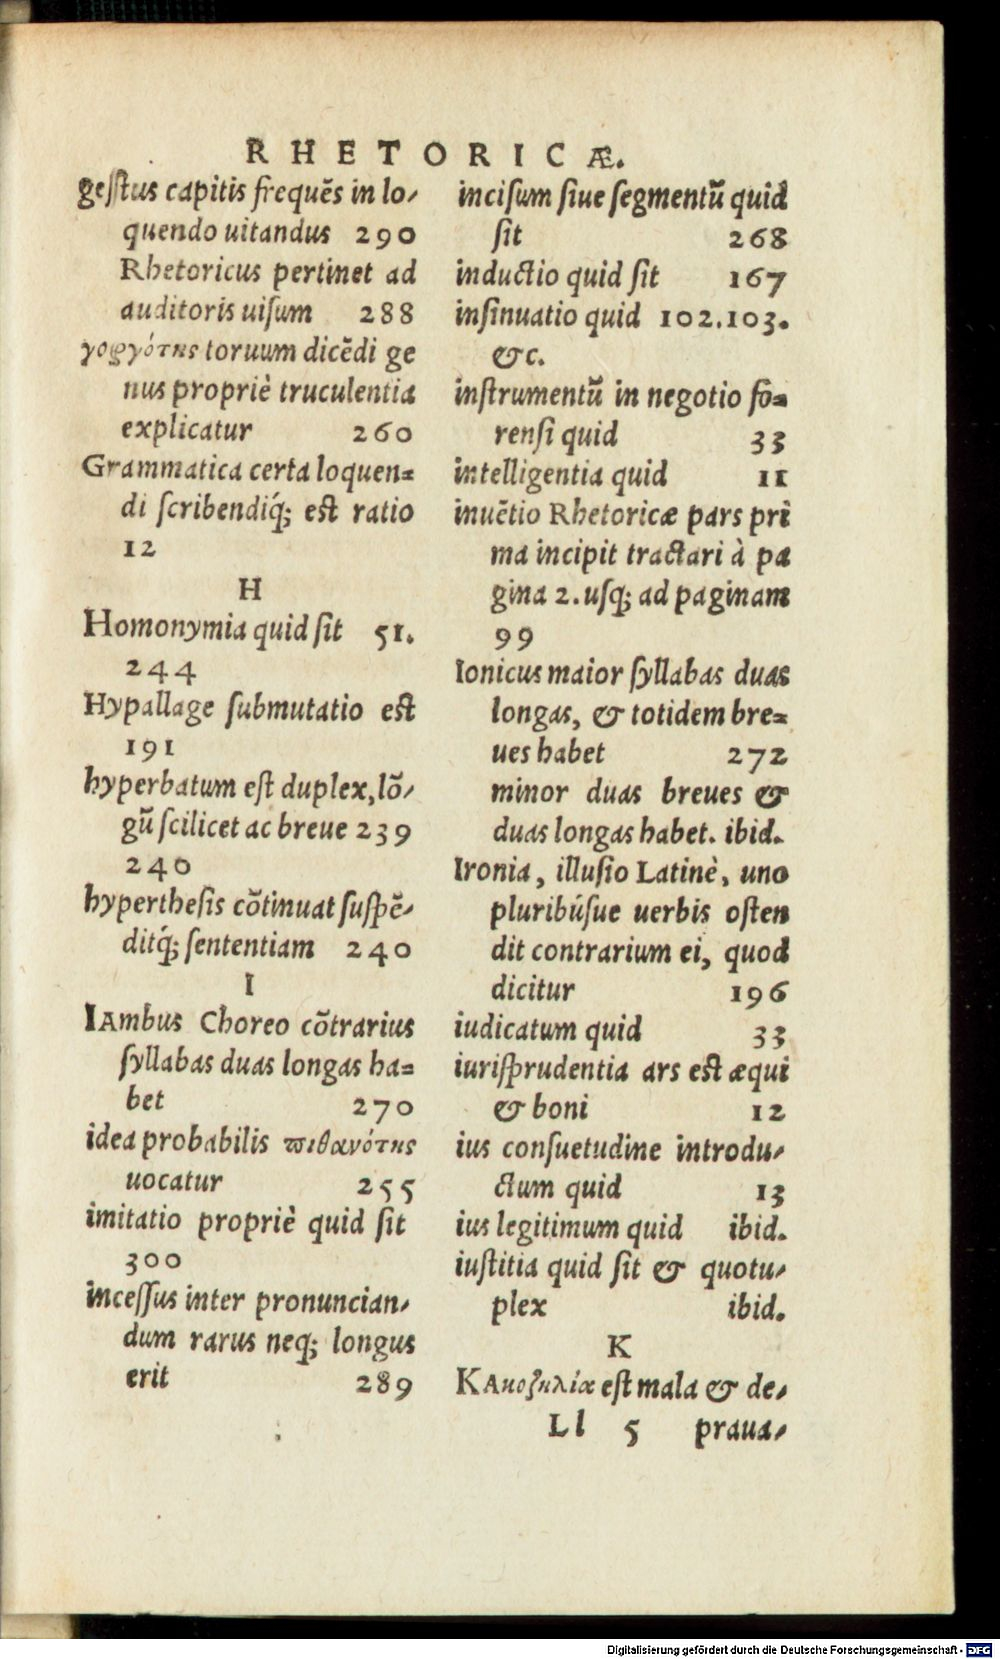 RHETORICÆ.
geſſtus capitis frequẽs in lo-
quendo uitandus 290
Rhetoricus pertinet ad
auditoris uiſum 288
γοργότης toruum dicẽdi ge
nus propriè truculentia
explicatur 260
Grammatica certa loquen=
di ſcribendiq́; est ratio
12
H
Homonymia quid ſit 51.
244
Hypallage ſubmutatio est
191
hyperbatum eſt duplex, lõ-
gũ ſcilicet ac breue 239
240
hyperthesis cõtinuat ſuſpẽ-
ditq́; ſententiam 240
I
IAmbus Choreo cõtrarius
ſyllabas duas longas ha=
bet 270
idea probabilis πιθανότης
uocatur 255
imitatio propriè quid ſit
300
inceſſus inter pronuncian-
dum rarus neq; longus
erit 289
inciſum ſiue ſegmentũ quid
ſit 268
inductio quid ſit 167
inſinuatio quid 102.103.
&c.
inſtrumentũ in negotio fo=
renſi quid 33
intelligentia quid 11
inuẽtio Rhetoricæ pars pri
ma incipit tractari à pa
gina 2. uſq; ad paginam
99
Ionicus maior ſyllabas duas
longas, & totidem bre=
ues habet 272
minor duas breues &
duas longas habet. ibid.
Ironia, illuſio Latinè, uno
pluribúſue uerbis oſten
dit contrarium ei, quod
dicitur 196
iudicatum quid 33
iuriſprudentia ars est æqui
& boni 12
ius conſuetudine introdu-
ctum quid 13
ius legitimum quid ibid.
iuſtitia quid ſit & quotu-
plex ibid.
K
KAκοζηλία eſt mala & de-
Ll 5 praua-
Digitalisierung gefördert durch die Deutsche Forschungsgemeinschaft - DFG